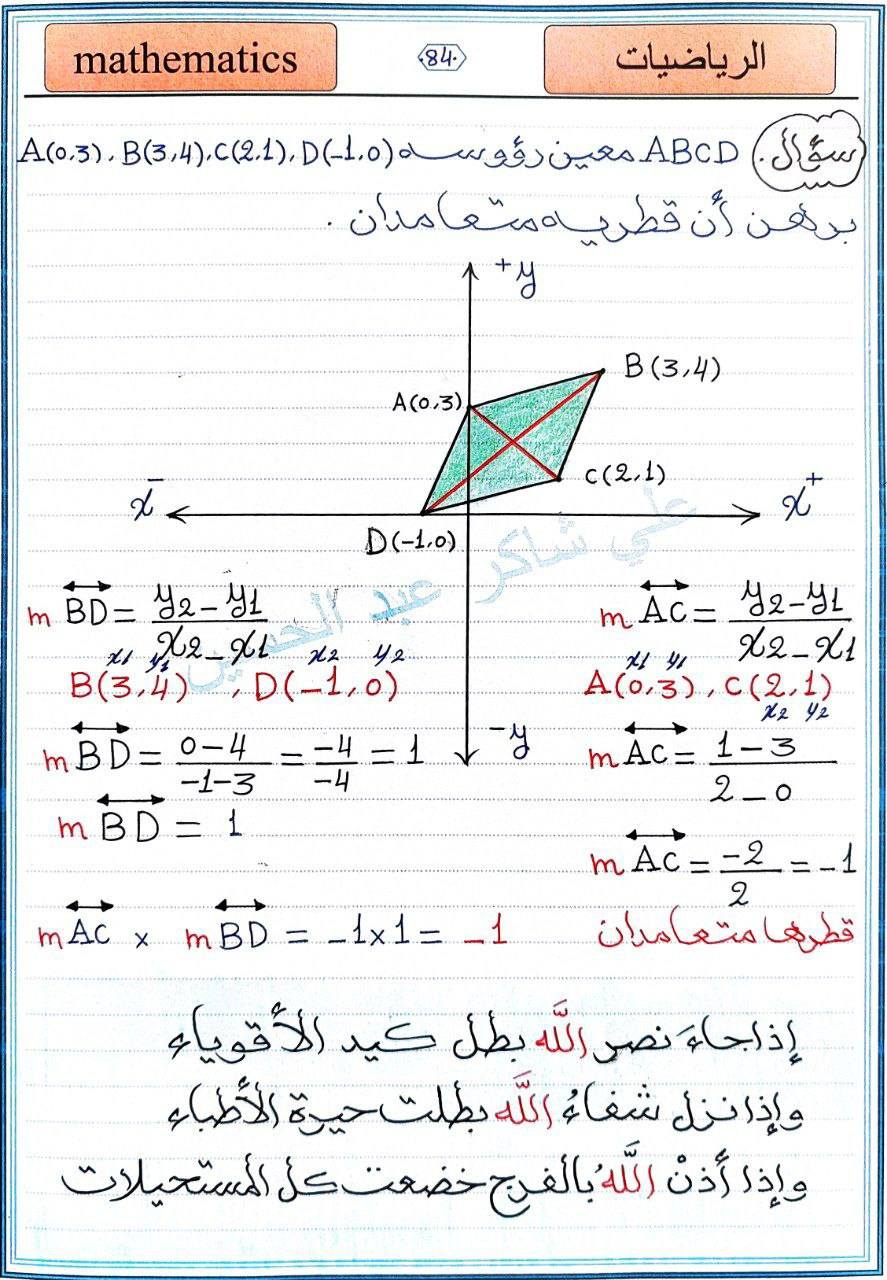 mathematics
84
الرياضيات
سؤال. ABCD معين رؤوسه A(0,3), B(3,4), C(2,1), D(-1,0)
برهن أن قطريه متعامدان .
+y
B(3,4)
A(0,3)
C(2,1)
x-
x+
D(-1,0)
-y
علي شاكر عبد الحسين
m AC = y2-y1 / x2-x1
x1 y1
A(0,3), C(2,1)
x2 y2
m AC = 1-3 / 2-0
m AC = -2/2 = -1
m BD = y2-y1 / x2-x1
x1 y1 x2 y2
B(3,4) , D(-1,0)
m BD = 0-4 / -1-3 = -4/-4 = 1
m BD = 1
m AC x m BD = -1x1 = -1
قطرها متعامدان
إذا جاءَ نصر اللَّه بطل كيد الأقوياء
وإذا نزل شفاءُ اللَّه بطلت حيرة الأطباء
وإذا أذنْ اللَّهُ بالفرج خضعت كل المستحيلات